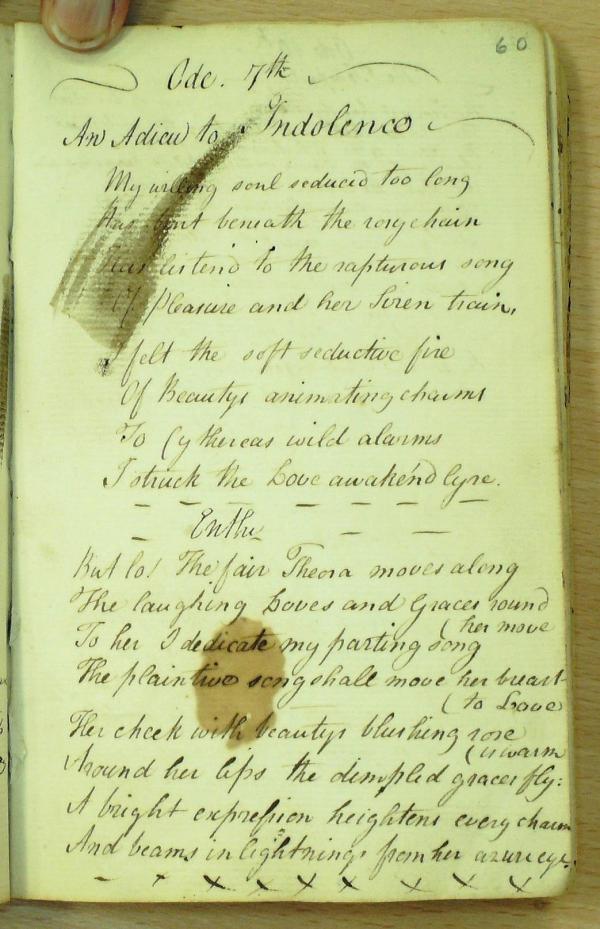 60
Ode. 7th
An Adieu to Indolence
My willing soul seduced too long
Has bent beneath the rosy chain
Has listen'd to the rapturous song
Of Pleasure and her Siren train,
I felt the soft seductive fire
Of Beautys animating charms
To Cythereas wild alarms
I struck the Love awaken'd lyre.
But lo! The fair Theora moves along
The laughing Loves and Graces round
( her move
To her I dedicate my parting song
The plaintive song shall move her breast
( to Love
Her cheek with beautys blushing rose
( is warm
Around her lips the dimpled graces fly:
A bright expression heightens every charm
And beams in lightnings from her azure eye.
x x x x x x x x